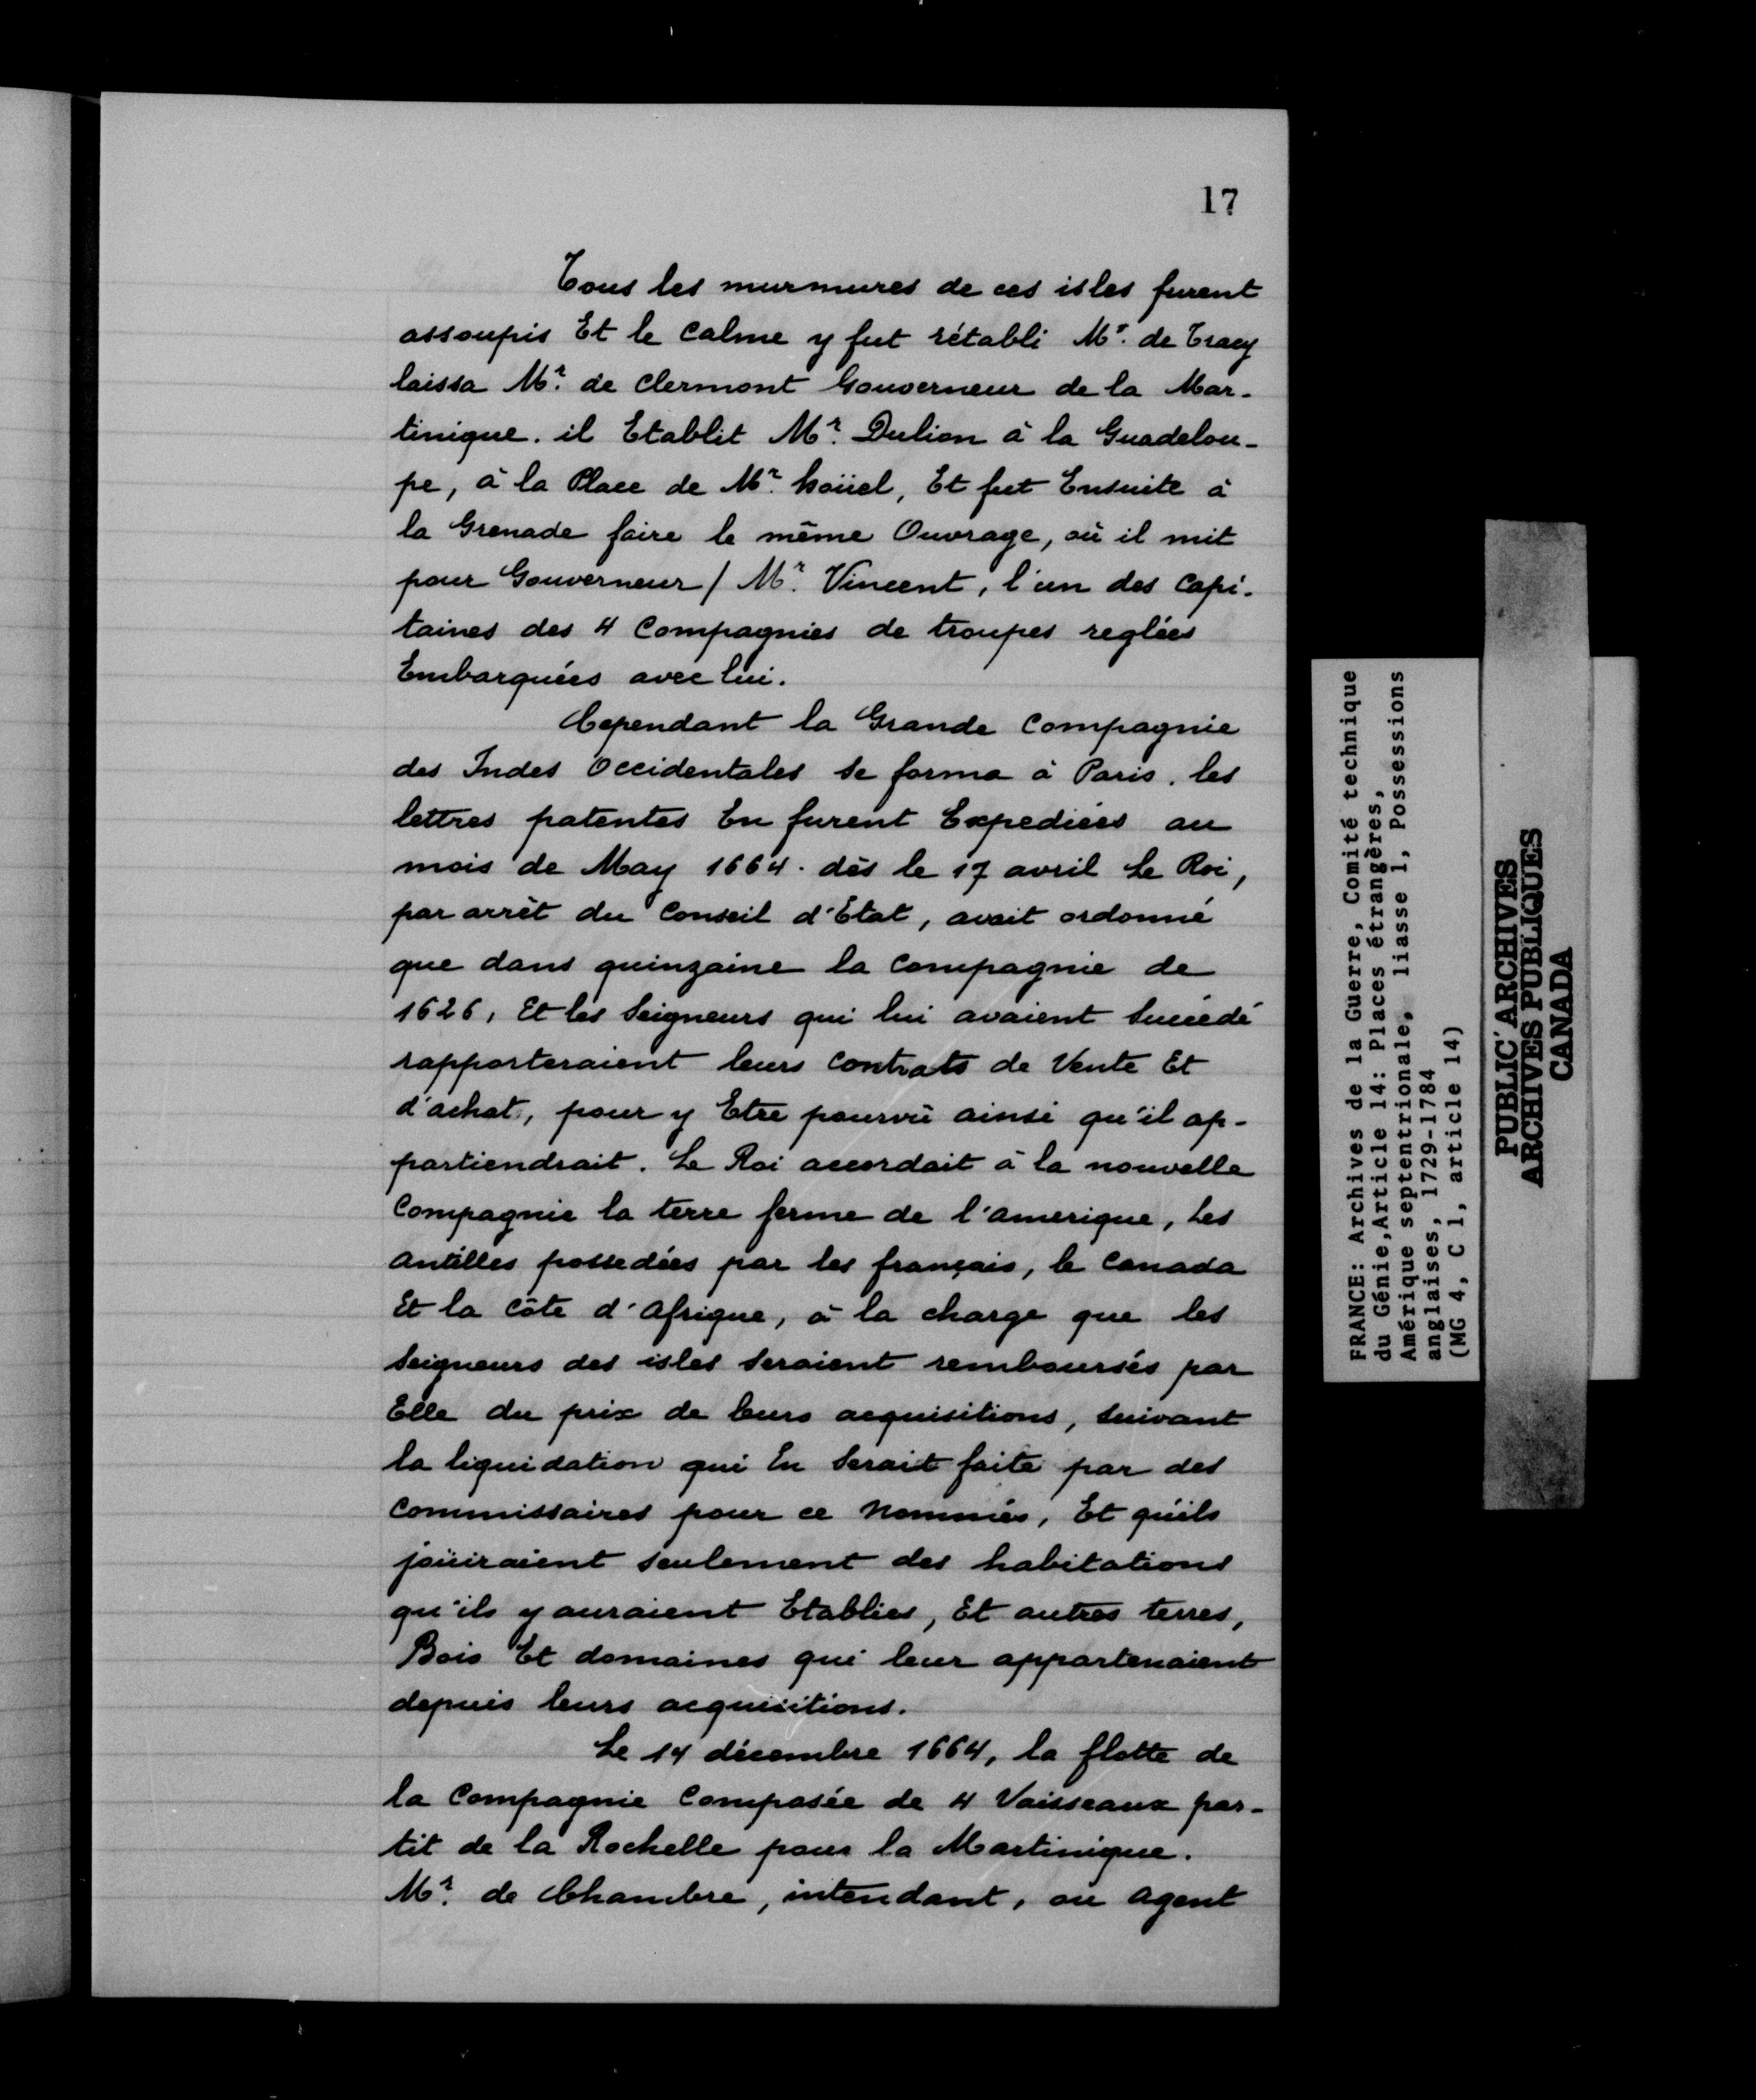 17
Tous les murmures de ces isles furent
assoupis Et le Calme y fut rétabli Mr. de Tracy
laissa Mr. de Clermont Gouverneur de la Mar-
tinique. il Etablit Mr. Dulion à la Guadelou-
pe, à la Place de Mr. hoüel, Et fut Ensuite à
la Grenade faire le même Ouvrage, où il mit
pour Gouverneur / Mr. Vincent, l'un des Capi-
taines des 4 Compagnies de troupes reglées
Embarquées avec lui.
Cependant la Grande Compagnie
des Indes Occidentales se forma à Paris. les
lettres patentes En furent Expediées au
mois de May 1664. dès le 17 avril Le Roi,
par arrêt du Conseil d'Etat, avait ordonné
que dans quinzaine la Compagnie de
1626, Et les Seigneurs qui lui avaient Succédé
rapporteraient leurs Contrats de Vente Et
d'achat, pour y Etre pourvû ainsi qu'il ap-
partiendrait. Le Roi accordait à la nouvelle
Compagnie la terre ferme de l'amerique, Les
antilles possedées par les français, le Canada
Et la Côte d'afrique, à la charge que les
Seigneurs des isles Seraient remboursés par
Elle du prix de leurs acquisitions, Suivant
la liquidation qui En Serait faite par des
Commissaires pour ce Nommés, Et qu'ils
joüiraient Seulement des habitations
qu'ils y auraient Etablies, Et autres terres,
Bois Et domaines qui leur appartenaient
depuis leurs acquisitions.
Le 14 décembre 1664, la flotte de
la Compagnie Composée de 4 Vaisseaux par-
tit de la Rochelle pour la Martinique.
Mr. de Chambré, intendant, ou agent
FRANCE: Archives de la Guerre, Comité technique
du Génie,Article 14: Places étrangères,
Amérique septentrionale, liasse 1, Possessions
anglaises, 1729-1784
(MG 4, C 1, article 14)
PUBLIC ARCHIVES
ARCHIVES PUBLIQUES
CANADA